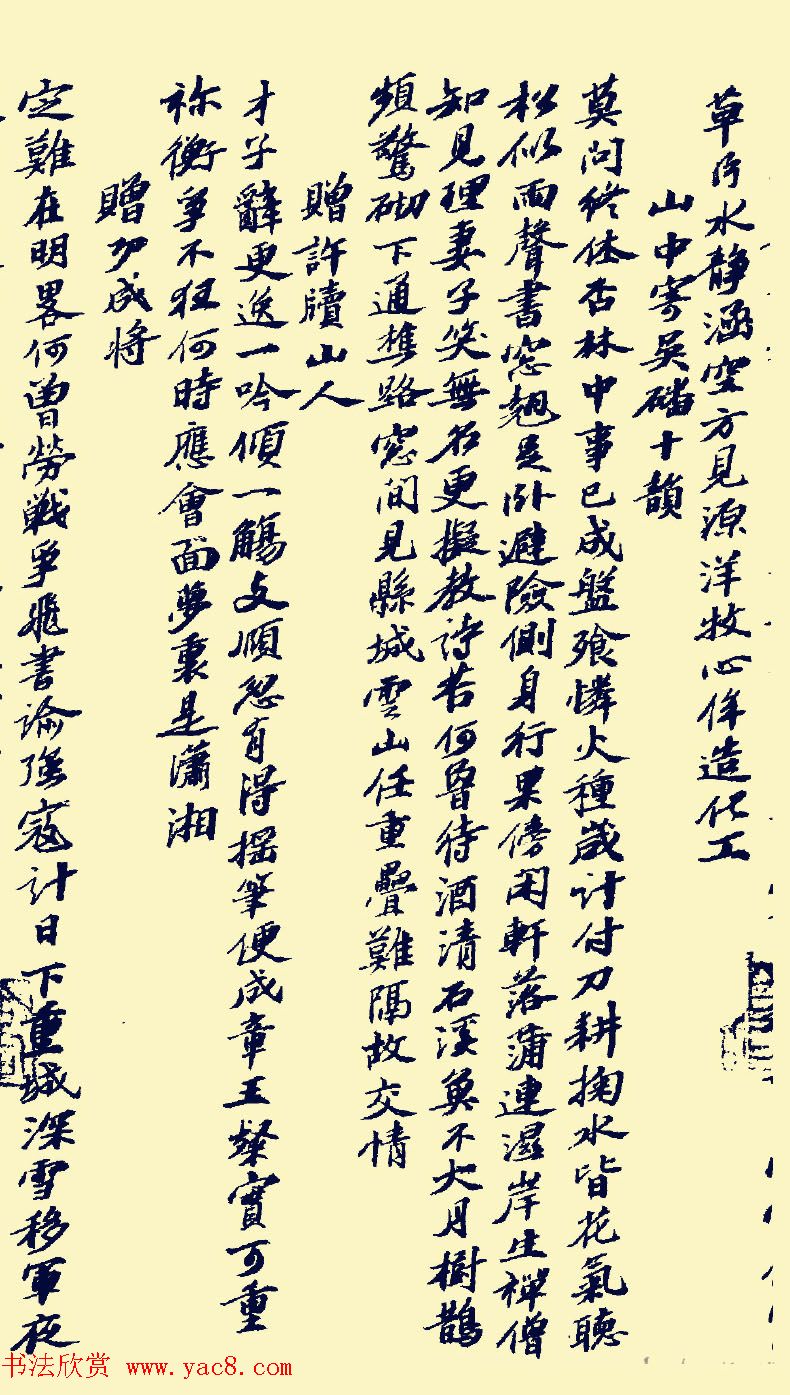 草污水静涵空方見源洋牧心侔造化工
山中寄吳磻十韻
莫问終休否林中事已成盤飱憐火種歲计付刀耕掬水皆花氣聴
松似雨聲書窓翹足卧避險側身行果傍闲軒落蒲連濕岸生禪僧
知見理妻子笑無名更擬教诗苦何曾待酒清石溪魚不大月樹鵲
頻驚砌下通樵路窓间見縣城雲山任重疊難隔故交情
贈許牘山人
才子辭更逸一吟傾一觴支頤忽有得揺筆便成章王粲實可重
祢衡爭不狂何時應會面夢裏是瀟湘
贈功成将
定難在明畧何曾勞戦爭飛書谕强寇计日下重城深雪移軍夜
书法欣赏 www.yac8.com